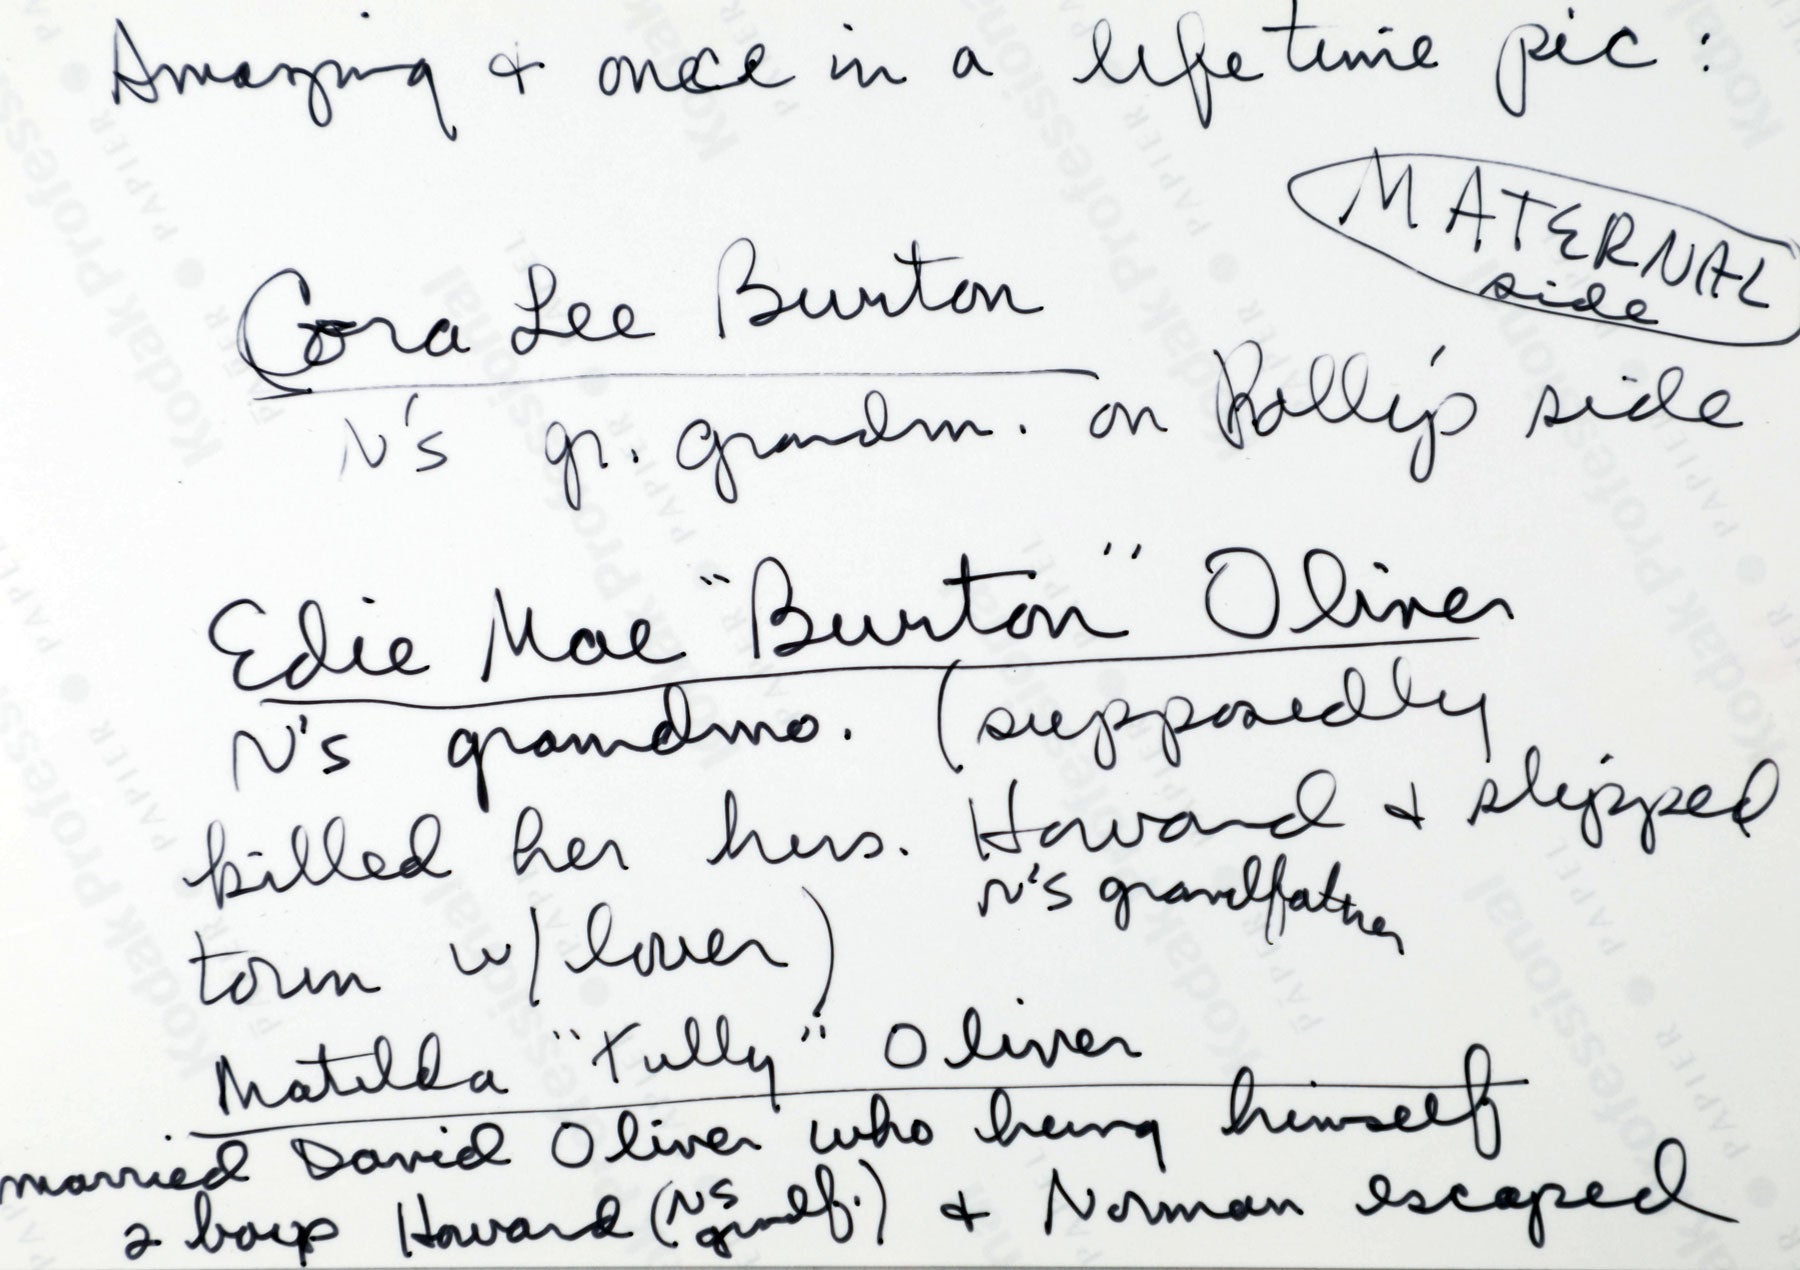 Amazing & once in a lifetime pic:
MATERNAL
side
Cora Lee Burton
N's gr. grandm. on Polly's side
Edie Mae "Burton" Oliver
N's grandmo. (supposedly
killed her hus. Howard & slipped
N's grandfather
town w/ lover)
Matilda "Tully" Oliver
married David Oliver who hung himself
2 boys Howard (N's grandf.) & Norman escaped
Kodak Professional
PAPIER
PAPEL